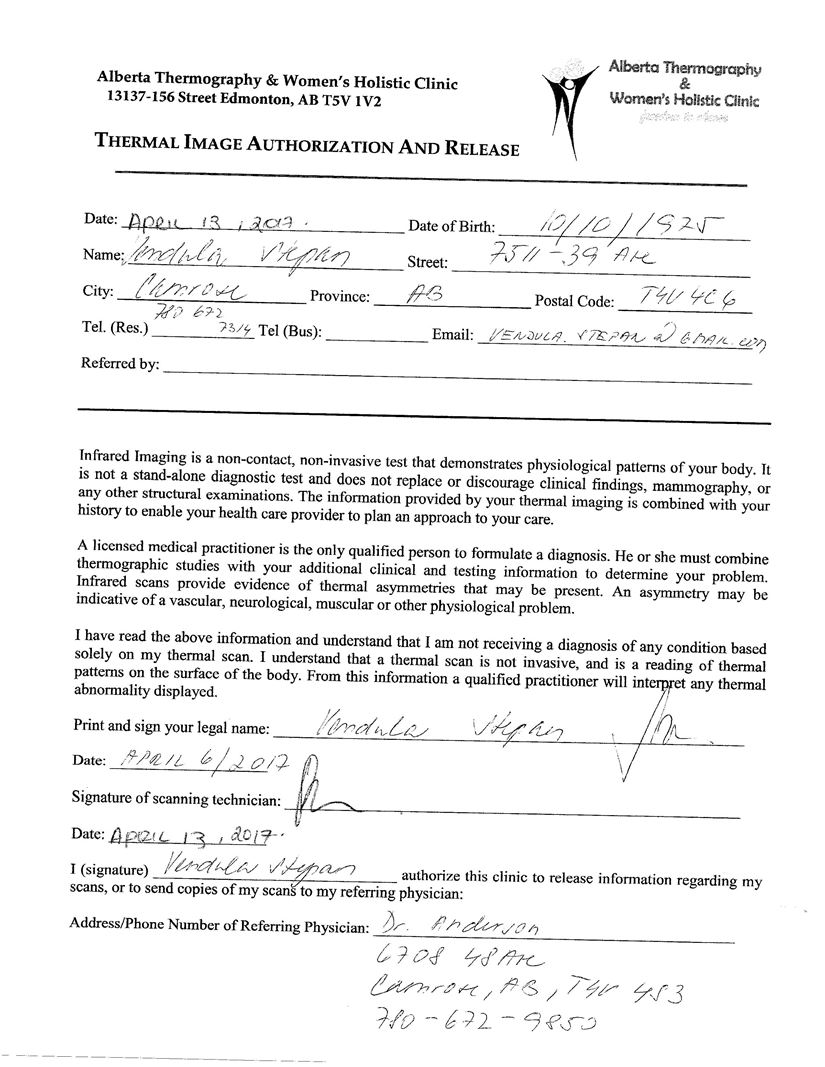 Alberta Thermography & Women's Holistic Clinic
13137-156 Street Edmonton, AB T5V 1V2
Alberta Thermography
&
Women's Holistic Clinic
THERMAL IMAGE AUTHORIZATION AND RELEASE
Date: APRIL 13, 2017. Date of Birth: 10/10/1925
Name: Vendula Stepan Street: 7511-39 Ave
City: Camrose Province: AB Postal Code: T4V 4C6
Tel. (Res.) 780 672 7314 Tel (Bus): Email: VENDULA.STEPAN@GMAIL.COM
Referred by:
Infrared Imaging is a non-contact, non-invasive test that demonstrates physiological patterns of your body. It
is not a stand-alone diagnostic test and does not replace or discourage clinical findings, mammography, or
any other structural examinations. The information provided by your thermal imaging is combined with your
history to enable your health care provider to plan an approach to your care.
A licensed medical practitioner is the only qualified person to formulate a diagnosis. He or she must combine
thermographic studies with your additional clinical and testing information to determine your problem.
Infrared scans provide evidence of thermal asymmetries that may be present. An asymmetry may be
indicative of a vascular, neurological, muscular or other physiological problem.
I have read the above information and understand that I am not receiving a diagnosis of any condition based
solely on my thermal scan. I understand that a thermal scan is not invasive, and is a reading of thermal
patterns on the surface of the body. From this information a qualified practitioner will interpret any thermal
abnormality displayed.
Print and sign your legal name: Vendula Stepan
Date: APRIL 6/2017
Signature of scanning technician:
Date: APRIL 13, 2017.
I (signature) Vendula Stepan authorize this clinic to release information regarding my
scans, or to send copies of my scans to my referring physician:
Address/Phone Number of Referring Physician: Dr. Anderson
6708 48 Ave
Camrose, AB, T4V 4S3
780-672-9850